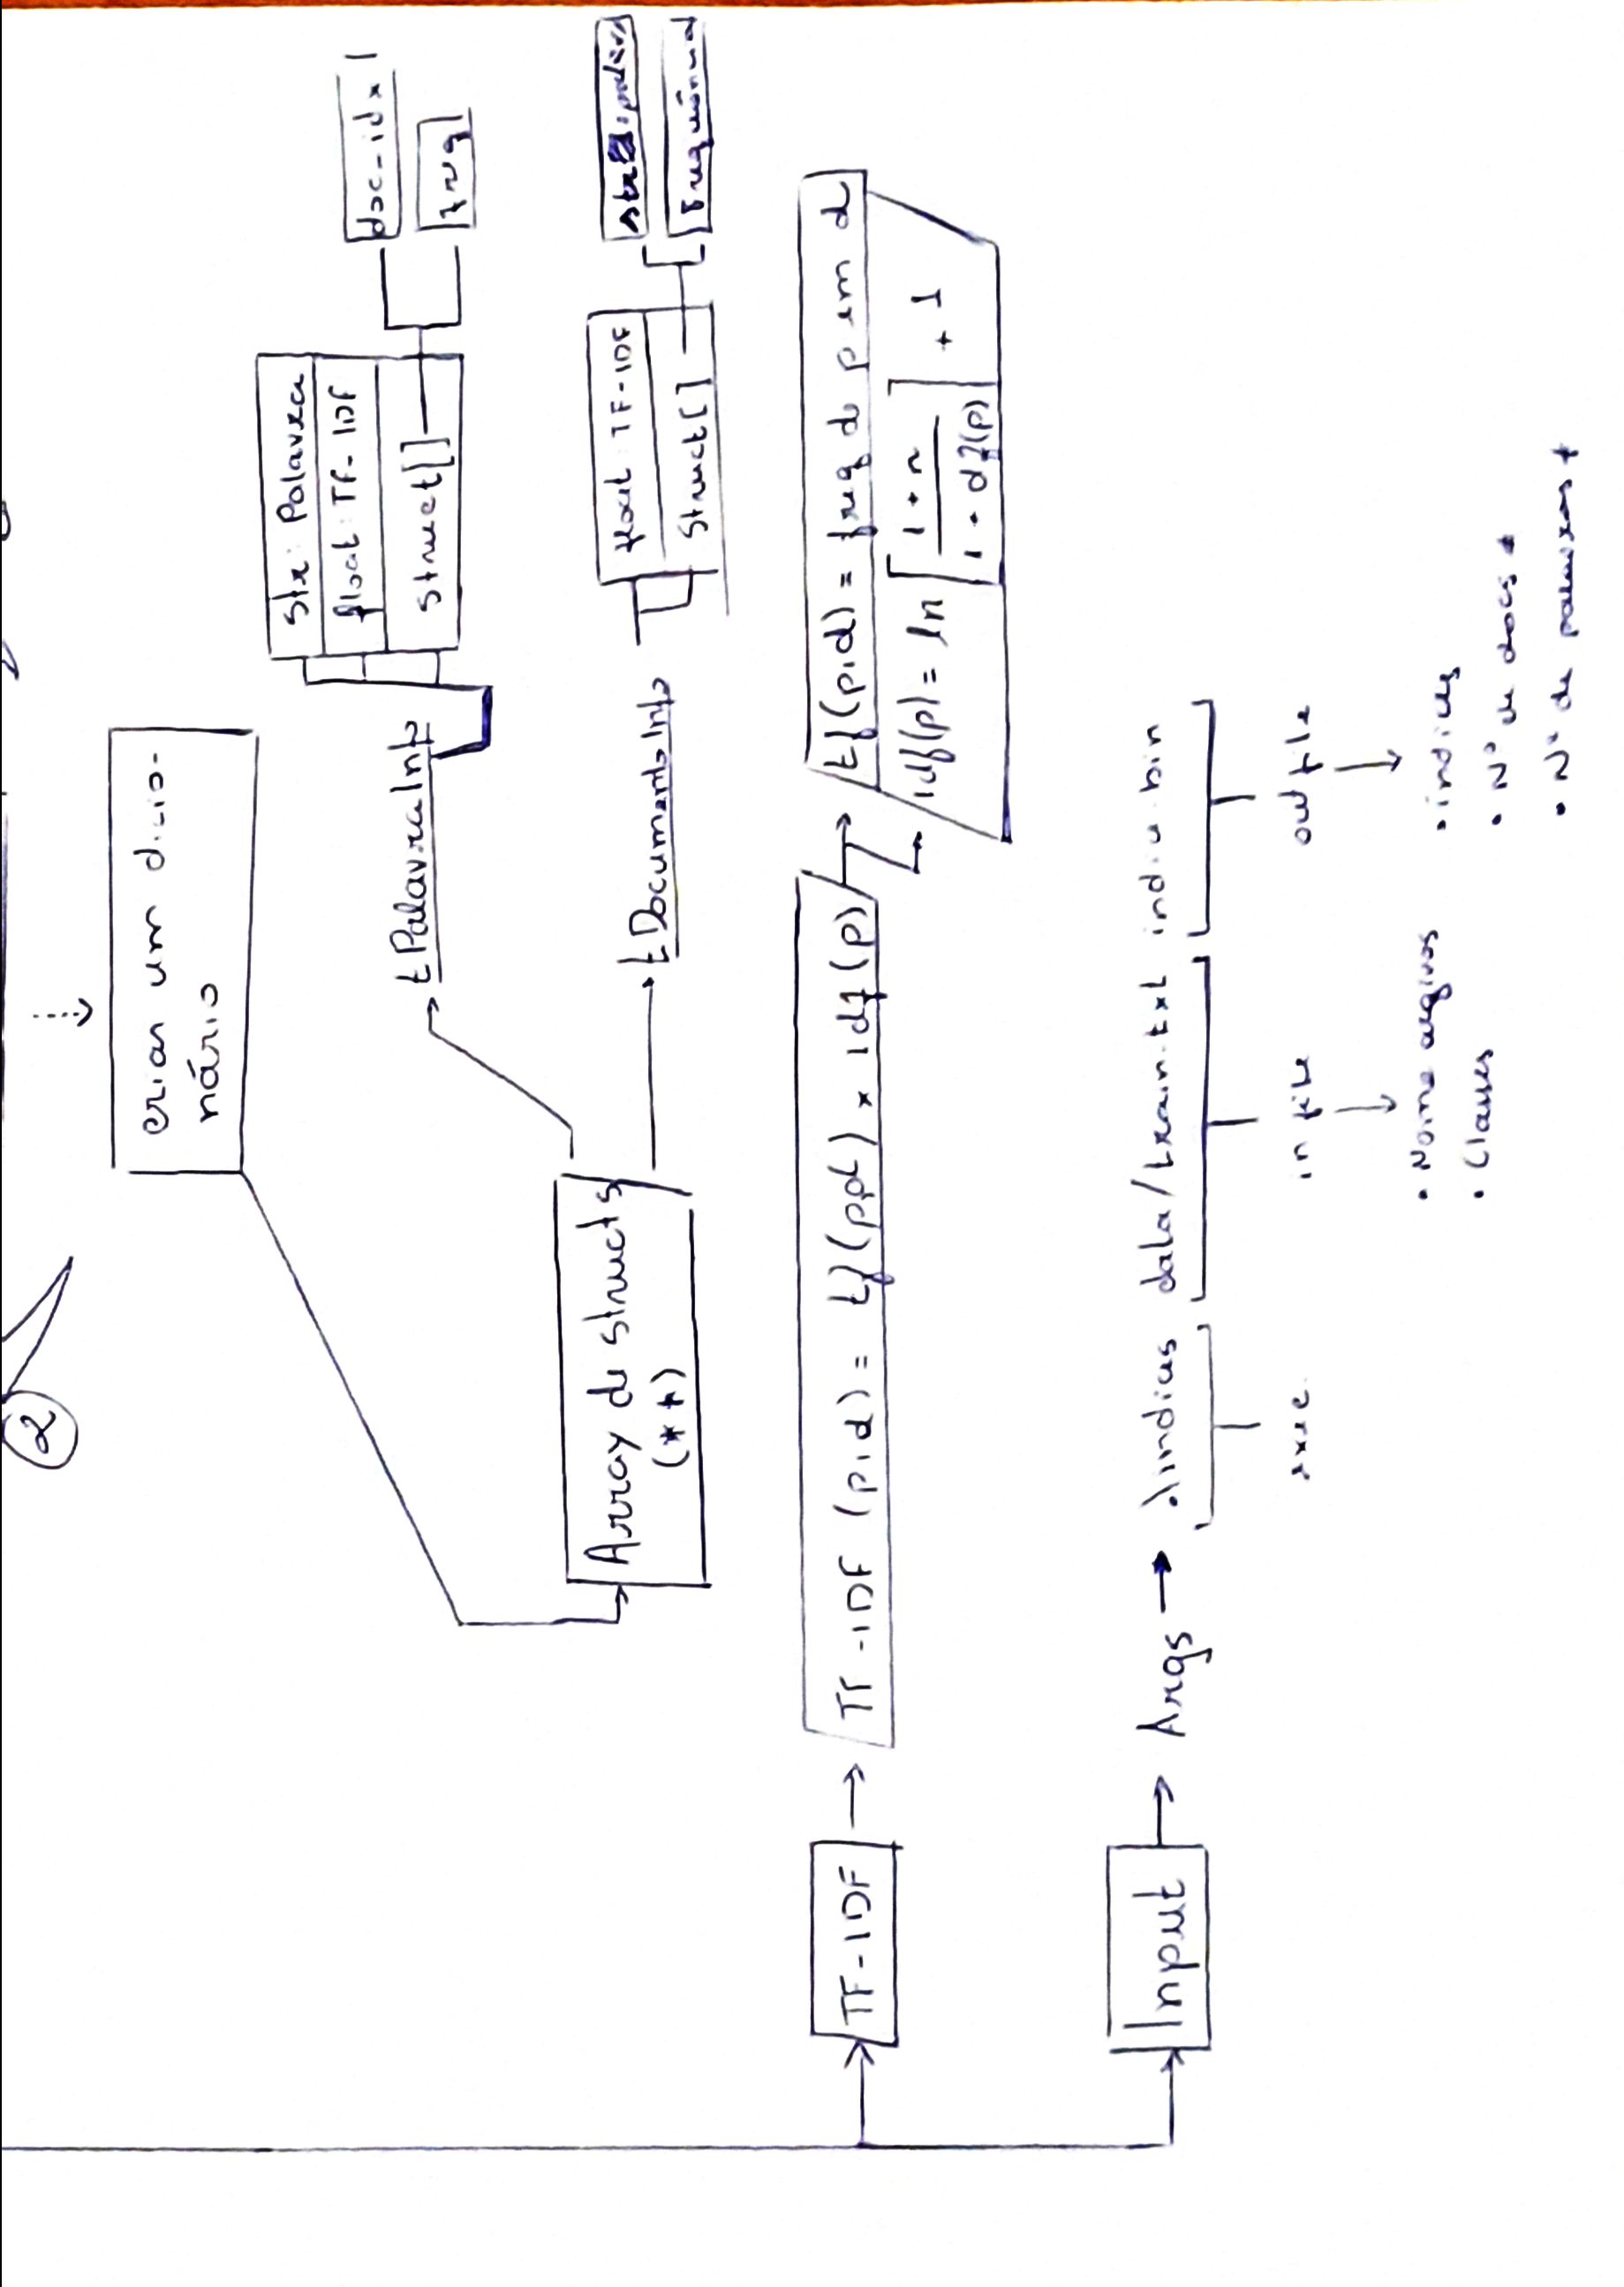 2
criar um dicio-
nário
Array de structs
(**)
tPalavraInf
str: Palavra
float: TF-IDF
struct[]
doc-idx
freq
tDocumentoInfo
float: TF-IDF
struct[]
frequência
TF-IDF
TF-IDF (p,d) = tf(p,d) x idf(p)
tf(p,d) = freq de p em d
idf(p) = ln [ 1 + n / 1 + df(p) ] + 1
Input
Args
.\indias data/train.txt indice.bin
exe.
in file
out file
• Nome arqivos
• Classes
• indices
• Nº de docs +
• Nº de palavras +